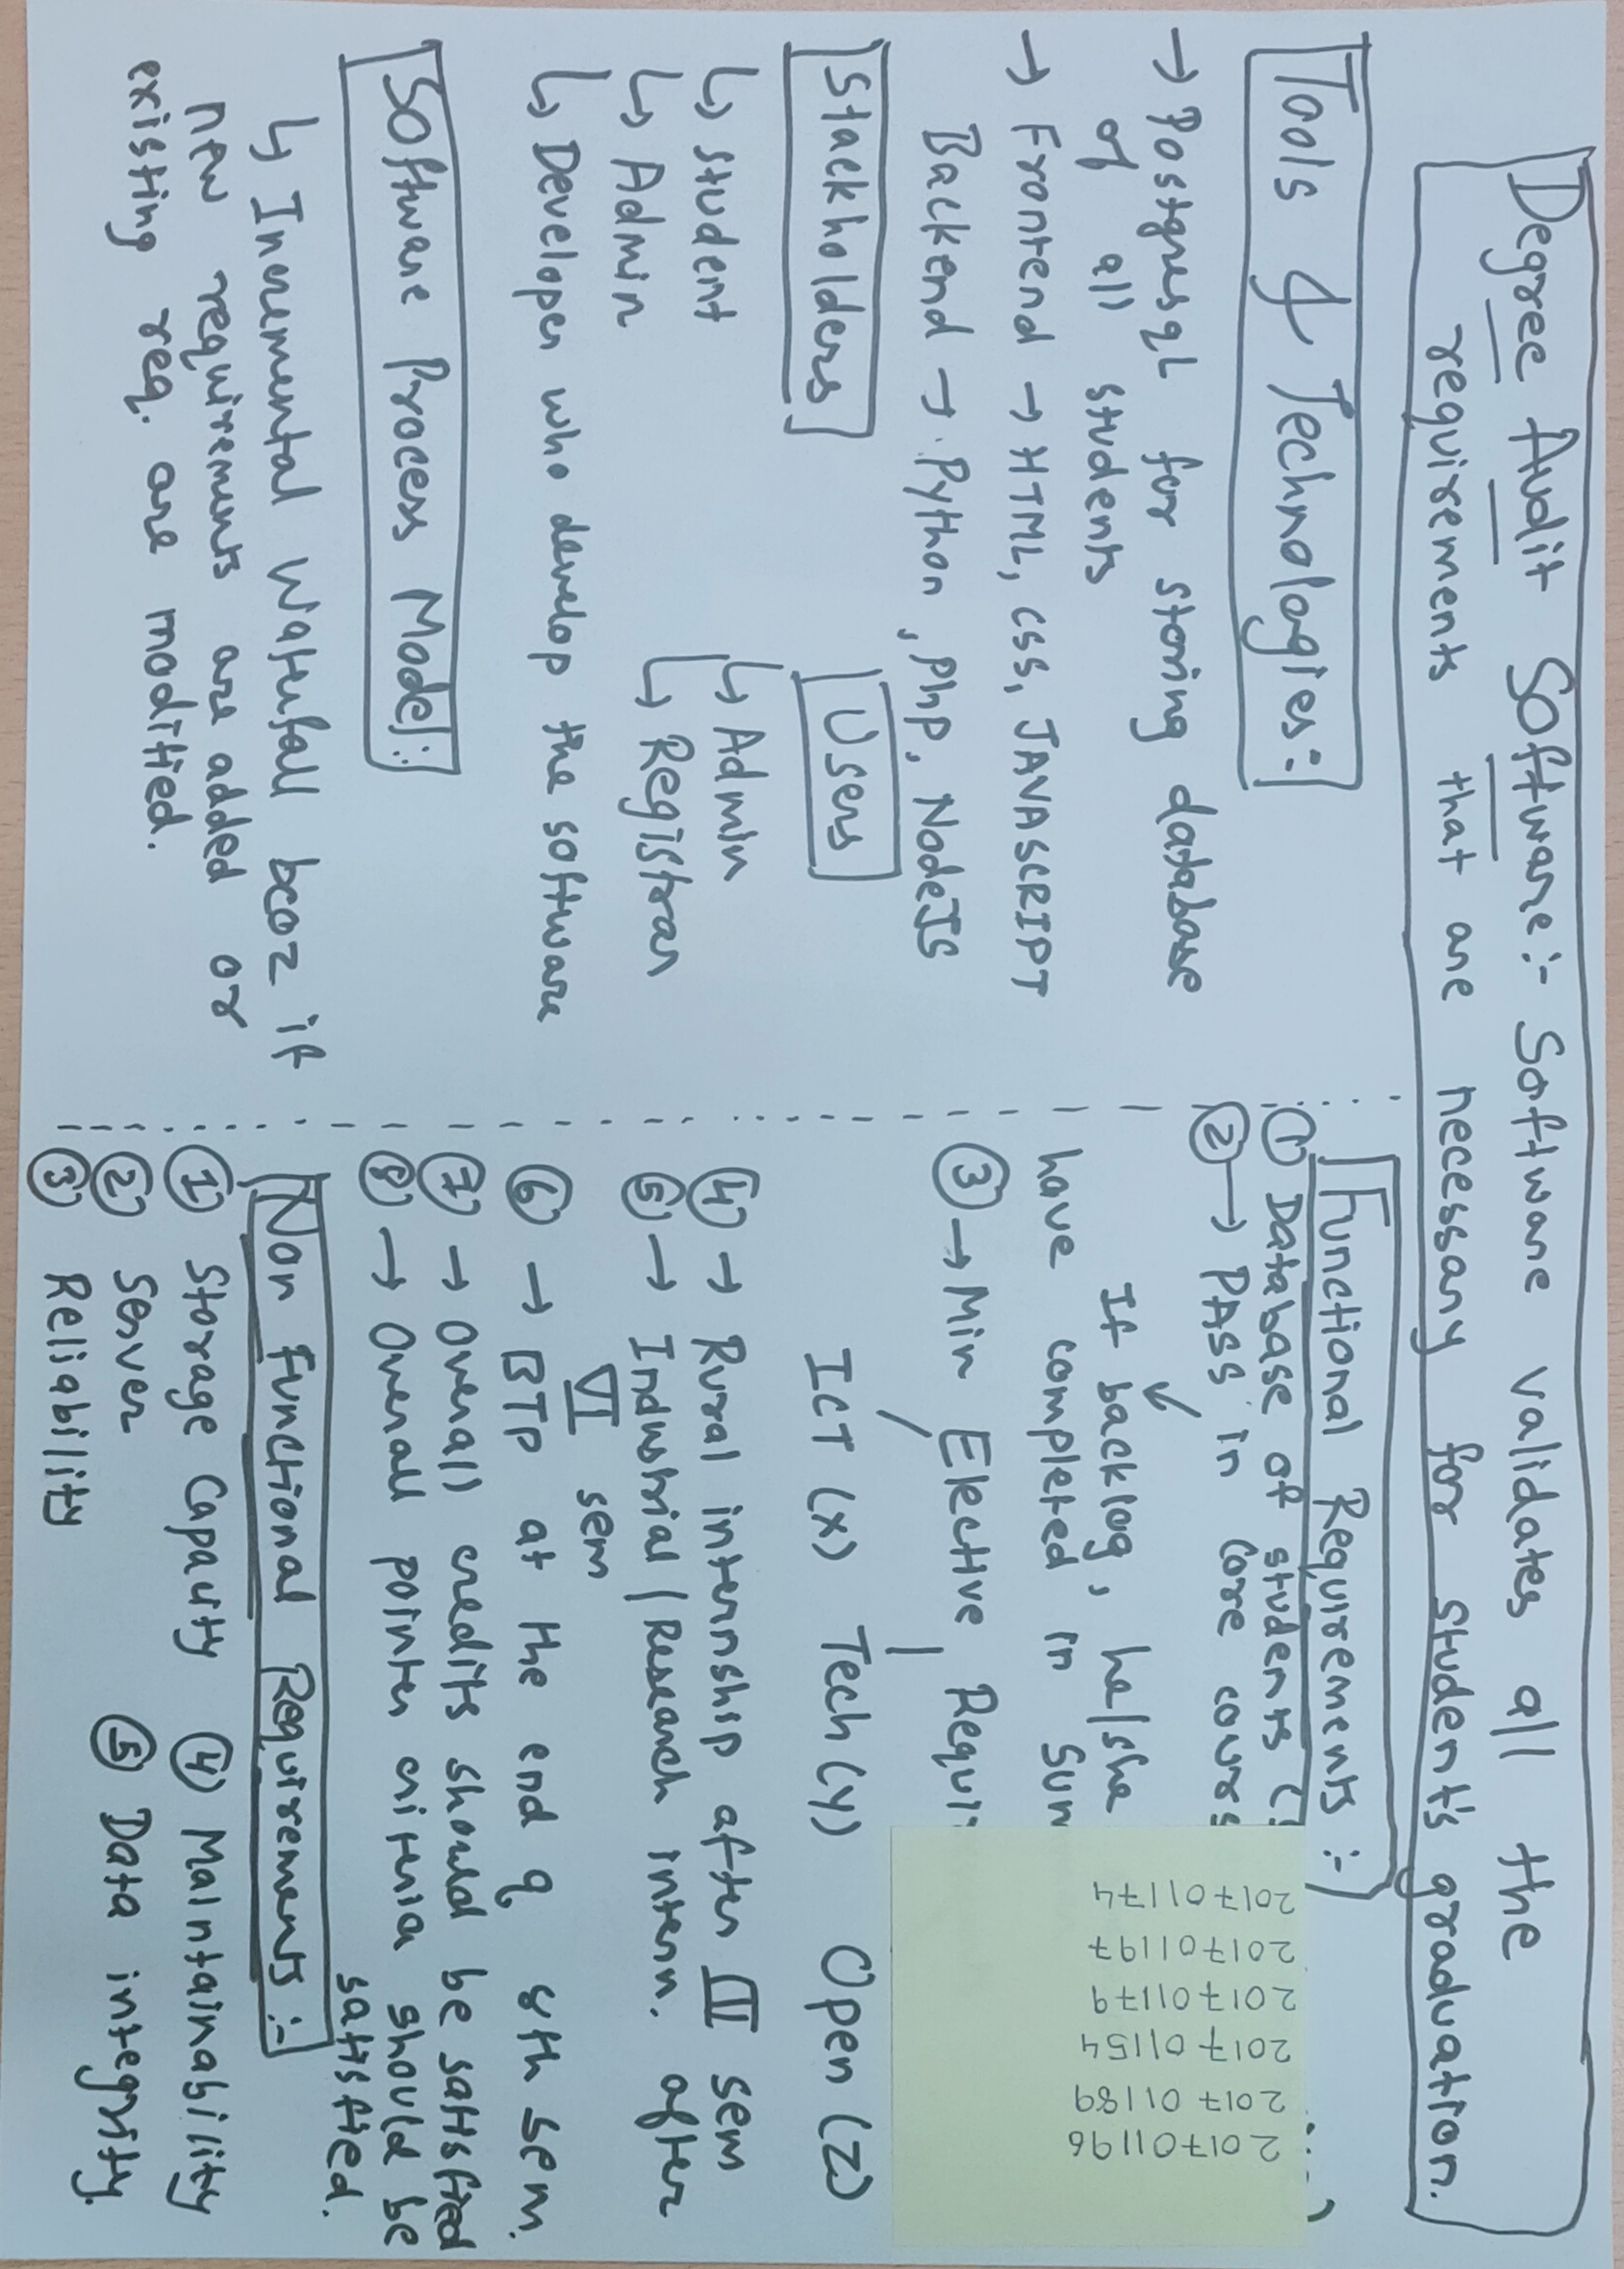 Degree Audit Software :- Software validates all the
requirements that are necessary for student's graduation.
Tools & Technologies :-
→ Postgresql for storing database
of all students
→ Frontend → HTML, CSS, JAVASCRIPT
Backend → Python, Php, NodeJS
Stackholders
↳ student
↳ Admin
↳ Developer who develop the software
Users
↳ Admin
↳ Registrar
Software Process Model :-
↳ Incremental Waterfall bcoz if
new requirements are added or
existing req. are modified.
Functional Requirements :-
① Database of students
② → PASS in Core
If backlog, he/she
have completed in
③ → Min Elective
ICT (x) Tech (y) Open (z)
④ → Rural internship after III sem
⑤ → Industrial / Research intern. after
VI sem
⑥ → BTP at the end of 8th sem.
⑦ → Overall credits should be satisfied
⑧ → Overall pointer criteria should be
satisfied.
Non Functional Requirements :-
① Storage Capacity ④ Maintainability
② Server ⑤ Data integrity.
③ Reliability
201701174
201701197
201701179
201701154
201701189
201701196